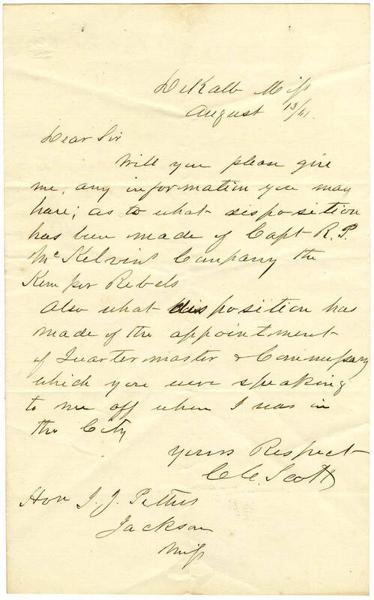 DeKalb Miss
August 13/61.
Dear Sir
Will you please give
me, any information you may
have; as to what disposition
has been made of Capt R. P.
McKelvins Company the
Kemper Rebels
Also what disposition has
made of the appointment
of Quartermaster & Commissary
which you were speaking
to me off when I was in
the City
Yours Respect
C. C. Scott
Hon J. J. Pettus
Jackson
Miss